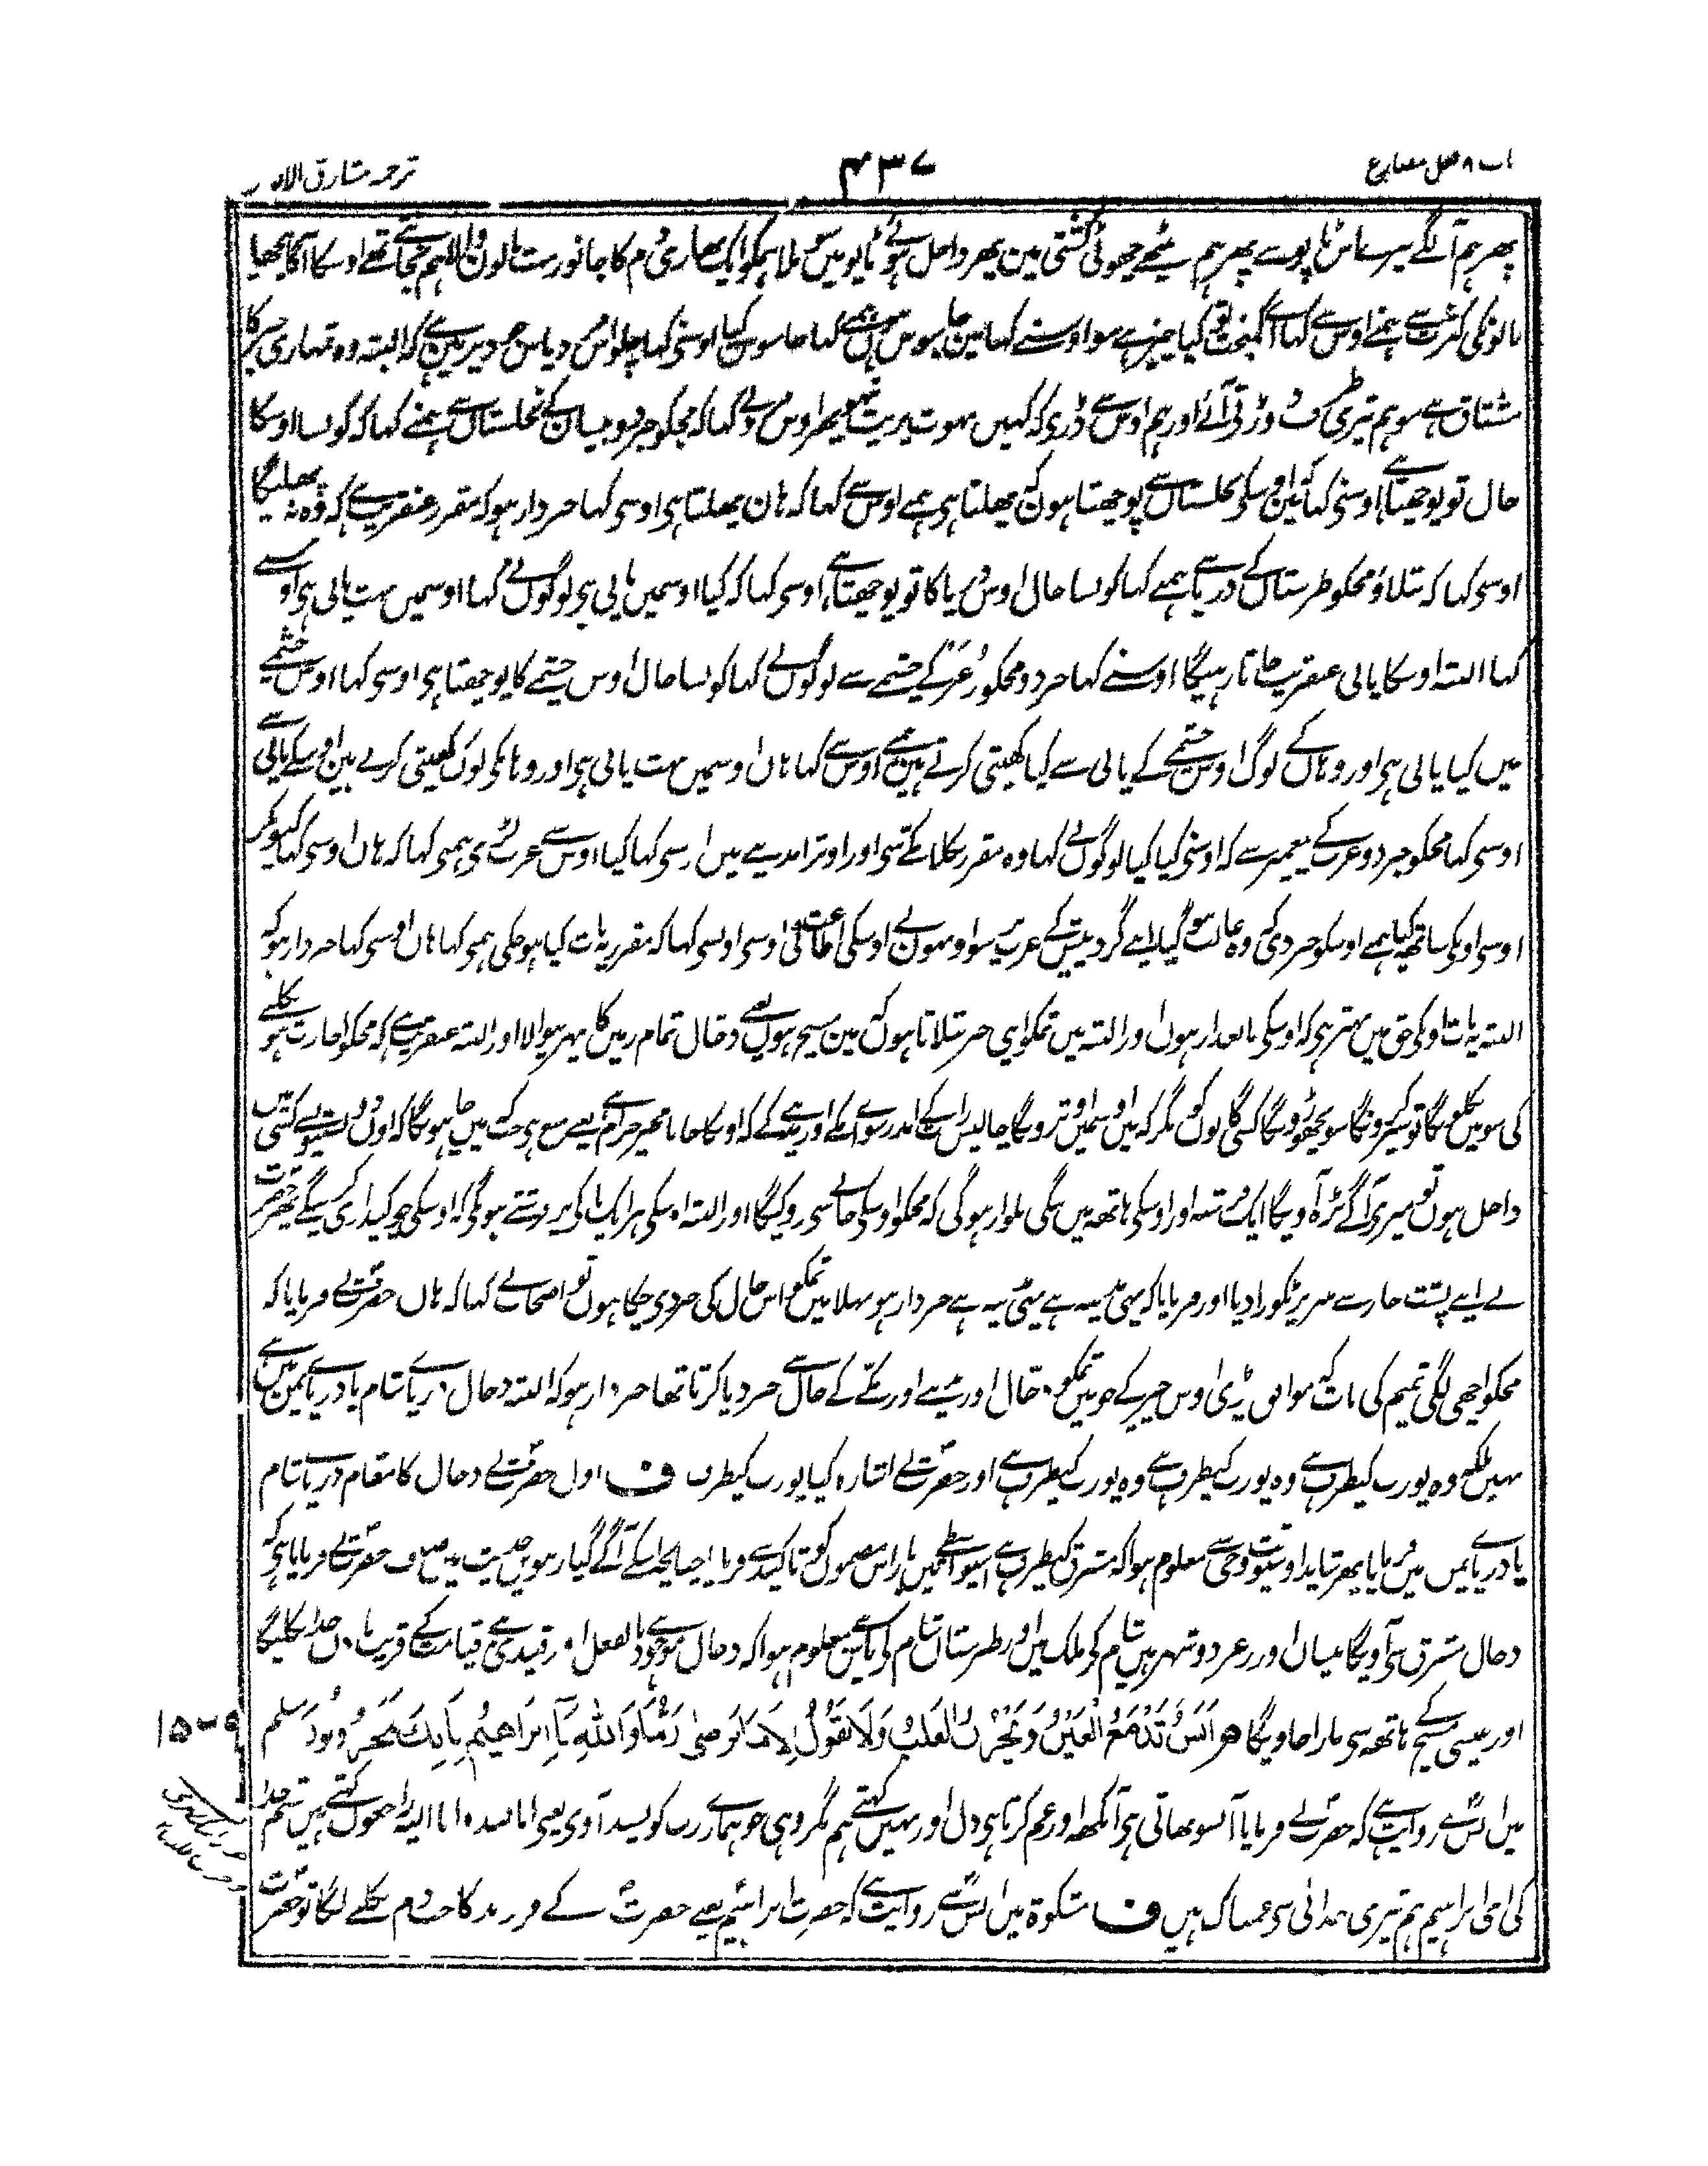 باب ۸ فصل مضارع
۴۳۷
ترجمہ مشارق الانوار
پھر ہم آ لگے تیرے پاس ٹاپو سے پھر ہم بیٹھے چھوٹی کشتی مین پھر داخل ہوئے ٹاپو میں سو ملا ہمکو ایک بھاری دم کا جانور بہت بالوں والا ہم نجانتے تھے اوسکا آگا پیچھا
بالونکی کثرت سے ہمنے اوس سے کہا اے کمبخت تو کیا چیز ہے سو اوسنے کہا مین جاسوس ہوں ہمنے کہا جاسوس کیا اوسنی کہا چلو اوس مرد پاس جو دیر مین ہے کہ البتہ وہ تمہاری خبر کا
مشتاق ہے سو ہم تیری طرف دوڑتی آئے اور ہم اوس سے ڈری کہ کہیں بھوت پریت نہو پھر اوس مرد نے کہا کہ مجکو خبر دو بیسان کے نخلستان سے ہمنے کہا کہ کونسا اوسکا
حال تو پوچھتا ہے اوسنی کہا کہ مین اوسکے نخلستان سے پوچھتا ہوں کہ پھلتا ہی ہمنے اوس سے کہا کہ ہان پھلتا ہی اوسی کہا خبردار ہو کہ مقرر عنقریب ہے کہ وہ نہ پھلیگا
اوسی کہا کہ بتلاؤ مجکو طبرستان کے دریا سے ہمنے کہا کونسا حال اوس دریا کا تو پوچھتا ہے اوسی کہا کہ کیا اوسمیں پانی ہی لوگوں نے کہا اوسمیں بہت پانی ہی اوسے
کہا البتہ اوسکا پانی عنقریب جاتا رہیگا اوسنے کہا خبر دو مجکو زُغَر کے چشمے سے لوگوں نے کہا کونسا حال اوس چشمے کا پوچھتا ہی اوسی کہا اوس چشمے
میں کیا پانی ہی اور وہاں کے لوگ اوس چشمے کے پانی سے کیا کھیتی کرتے ہین ہمنے اوس سے کہا ہاں اوسمیں بہت پانی ہی اور وہانکی لوگ کھیتی کرتے ہین اوسکے پانی سے
اوسی کہا مجکو خبر دو عرب کے پیغمبر سے کہ اوسنی کیا کیا لوگوں نے کہا وہ مقرر نکلا مکے سی اور اوترا مدینے میں اوسی کہا کیا اوس سے عرب لڑے ہی ہمنی کہا کہ ہاں اوسی کہا کیونکر
اوسی اونکی ساتھ کیا کیا ہمنے اوسکو خبر دی کہ وہ غالب ہو گیا اپنے گرد پیش کے عرب پر سو اونہوں نے اوسکی اطاعت کی اوسی اونسی کہا کہ مقرر یہ بات کیا ہو چکی ہمنی کہا ہاں اوسی کہا خبردار ہو کہ
البتہ یہ بات اونکی حق میں بہتر ہی کہ اوسکی تابعدار ہوں اور البتہ میں تمکو اپنی خبر بتلاتا ہوں کہ مین مسیح ہوں یعنے دجال تمام زمین کا پھرنیوالا اور البتہ عنقریب ہے کہ مجکو اجازت ہو نکلنے
کی سو میں نکلونگا تو سیر کرونگا سو نچھوڑونگا کسی گانوں کو مگر کہ میں اوسمیں اوترونگا چالیس رات کے اندر سوائے مکے اور مدینے کے کہ اوسکا جانا مجھپر حرام ہے یعنے منع ہی جب میں چاہونگا کہ اون دو بستیونسے کسی میں
داخل ہوں تو میری آگے بڑہ آویگا ایک فرشتہ اور اوسکی ہاتھ میں ننگی تلوار ہوگی کہ مجکو اوسکی جانے سی روکیگا اور البتہ اوسکی ہر ایک ناکی پر فرشتے ہونگی کہ اوسکی چوکیداری کرینگے پھر حضرت
نے اپنے پشت خار سے منبر پر ٹکورا دیا اور فرمایا کہ یہی مدینہ ہے یہی مدینہ ہے خبردار ہو بھلا میں تمکو اس حال کی خبر دی چکا ہوں تو اصحاب نے کہا کہ ہاں حضرت نے فرمایا کہ
مجکو اچھی لگی تمیم کی بات کہ موافق پڑی اوس خبر کے جو میں تمکو دجال اور مدینے اور مکے کے حال سے خبر دیا کرتا تھا خبردار ہو کہ البتہ دجال دریائے شام یا دریائے یمن میں ہے
نہیں بلکہ وہ پورب کیطرف ہے وہ پورب کیطرف ہے وہ پورب کیطرف ہے اور حضرت نے اشارہ کیا پورب کیطرف ف اول حضرت نے دجال کا مقام دریائے شام
یا دریائے یمن میں فرمایا پھر شاید اوسیوقت وحی سے معلوم ہوا کہ مشرق کیطرف ہے اسیواسطے تین بار اس مضمون کو تاکید سے فرمایا چنانچہ اسکے آگے گیارہویں حدیث میں صاف حضرت نے فرمایا ہی کہ
دجال مشرق سی آویگا بیسان اور زغر دو شہر ہیں شام کی ملک میں اور طبرستان شام کی پاس ہے معلوم ہوا کہ دجال موجود ہے بالفعل اور قید ہے قیامت کے قریب باذن خدا نکلیگا
اور عیسی مسیح کے ہاتھ سی مارا جاویگا ھـ اَنَسٌ تَدْمَعُ الْعَيْنُ وَيَحْزَنُ الْقَلْبُ وَلَا نَقُوْلُ اِلَّا مَا يَرْضٰى رَبُّنَا وَاللّٰهِ يَا اِبْرَاهِيْمُ اِنَّا بِكَ لَمَحْزُوْنُوْنَ مسلم
۱۵۰۹
میں انسؓ سے روایت ہے کہ حضرت نے فرمایا آنسو بہاتی ہی آنکھ اور غم کرتا ہی دل اور نہیں کہتے ہم مگر وہی جو ہمارے رب کو پسند آوی یعنی انا للہ و انا الیہ راجعون کہتے ہیں قسم خدا
کی ای ابراہیم ہم تیری جدائی سی غمناک ہیں ف مشکوۃ میں انسؓ سے روایت ہے کہ جب ابراہیم یعنے حضرت کے فرزند کا دم نکلنے لگا تو حضرت